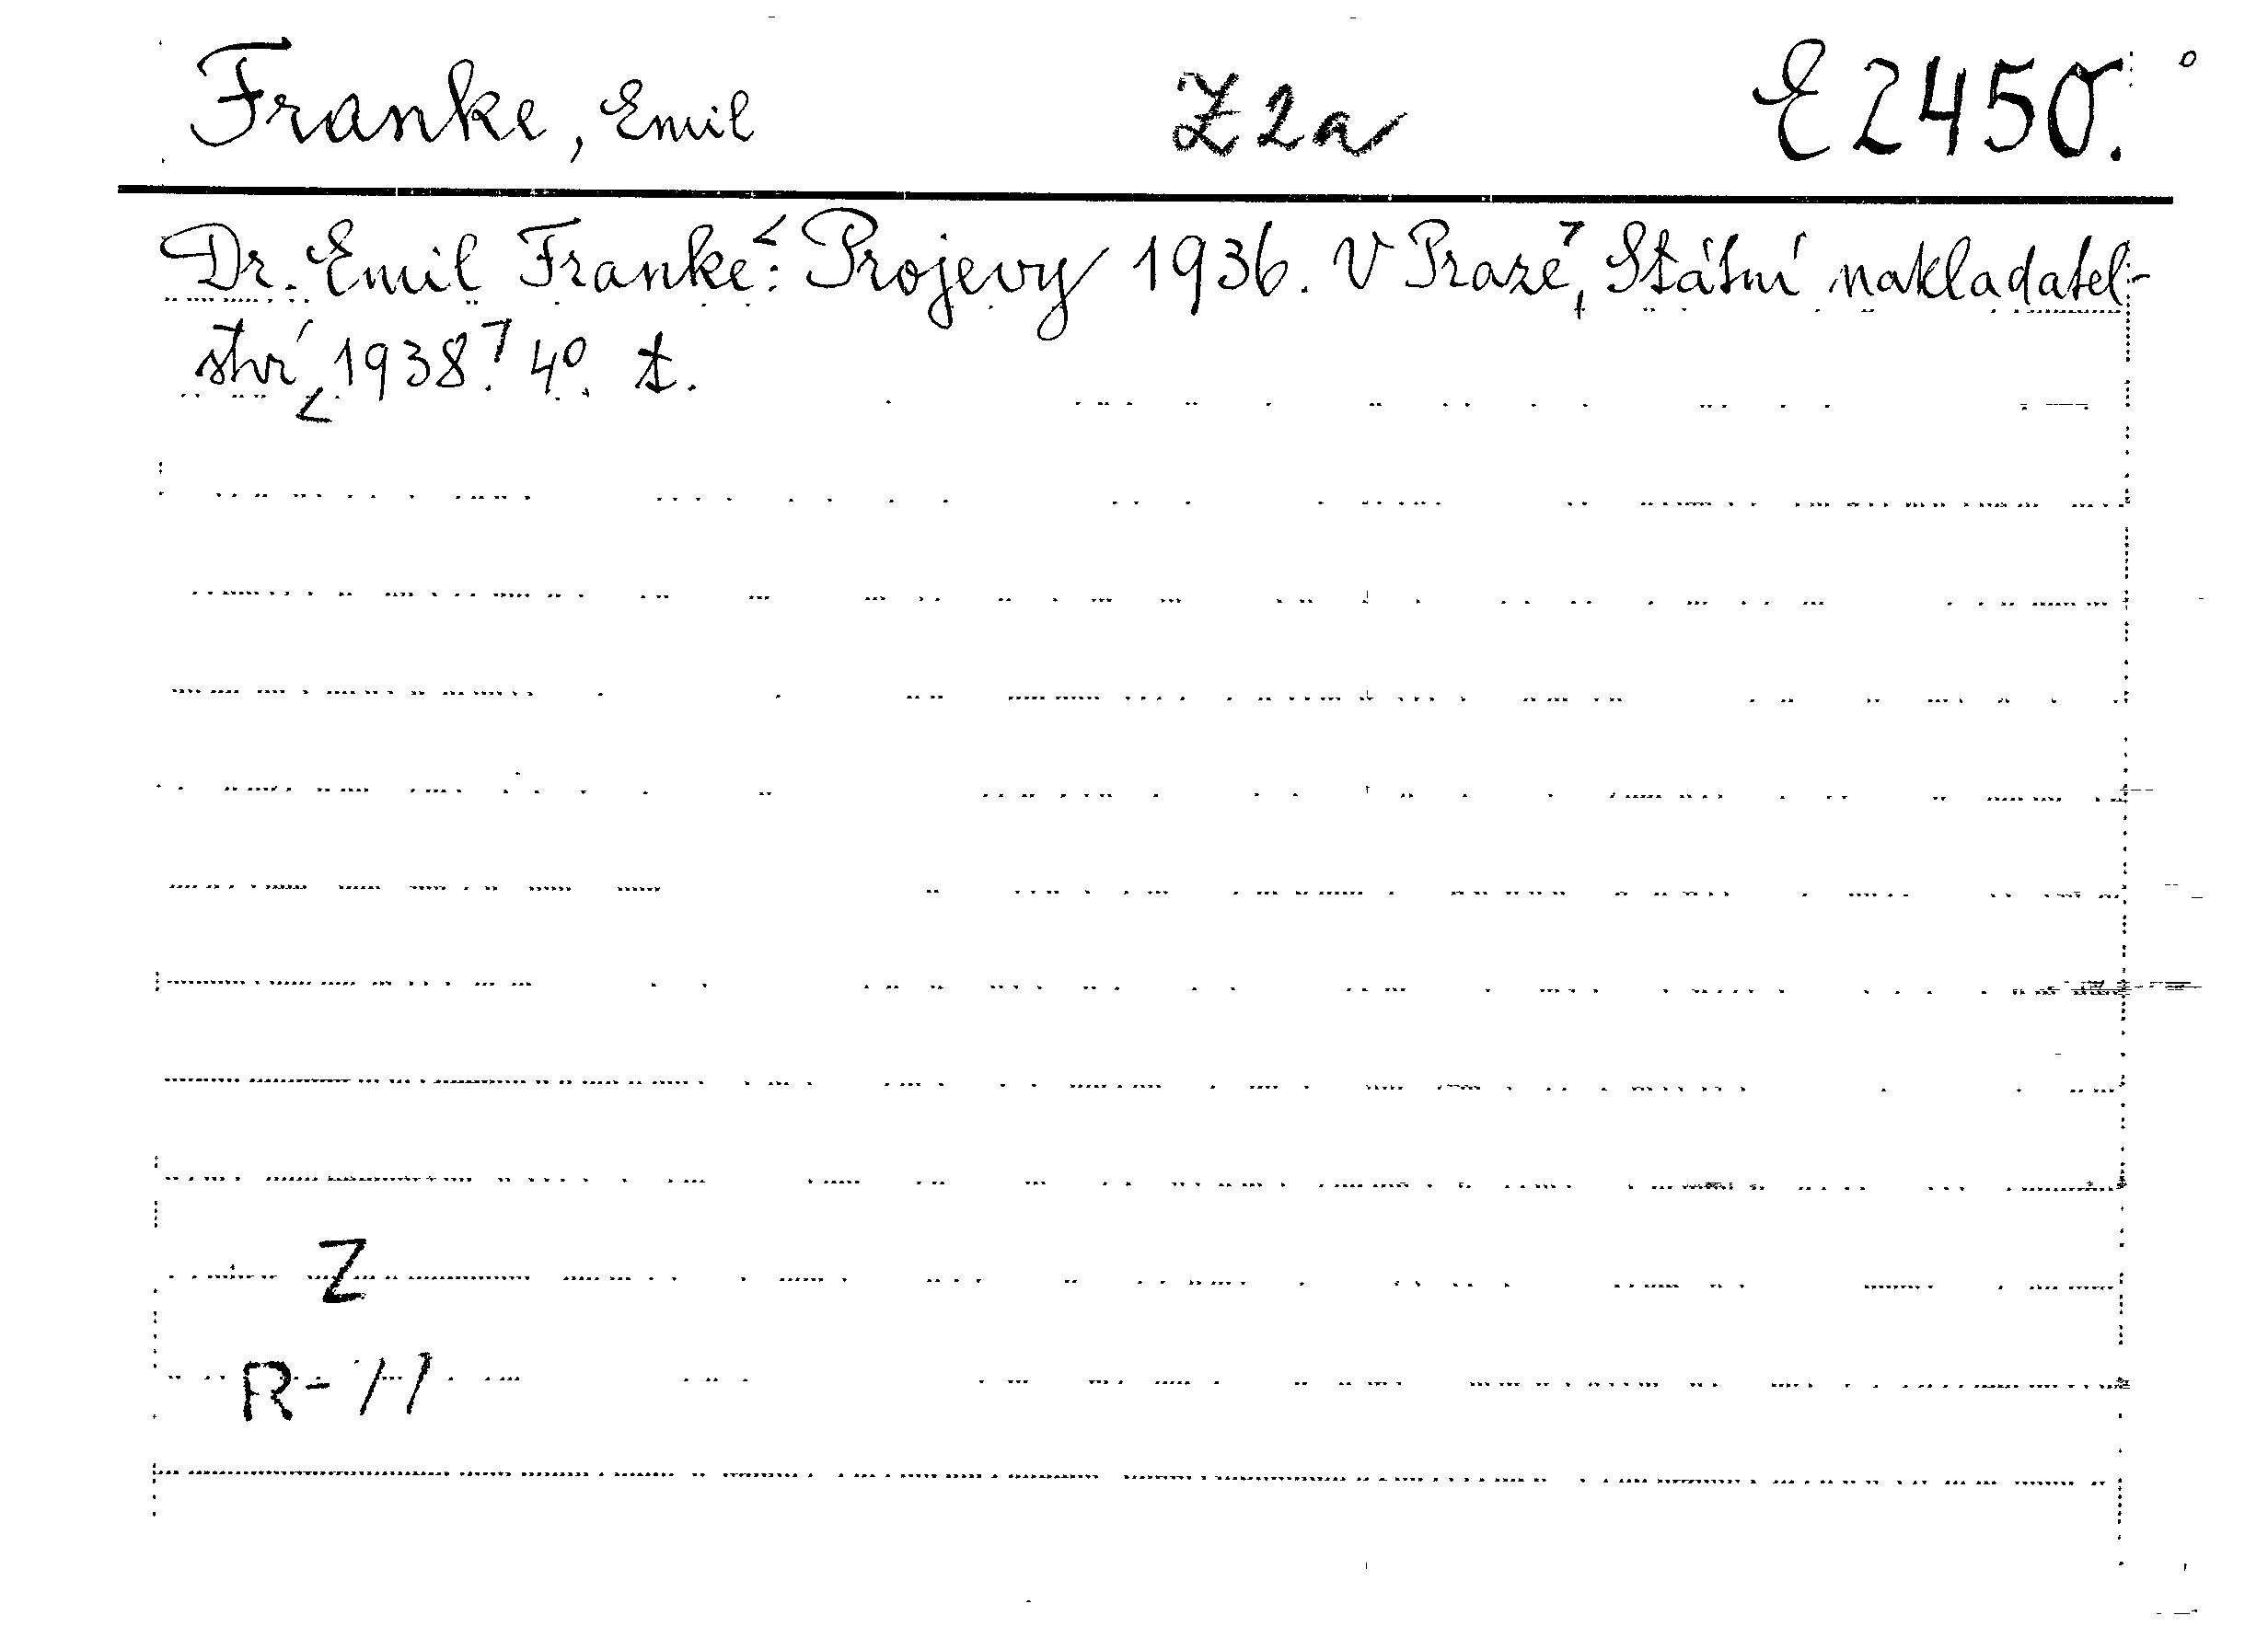 Franke, Emil Z2a E 2450.
Dr. Emil Franke: Projevy 1936. V Praze, Státní nakladatel-
ství, 1938. 4°.
Z
R-